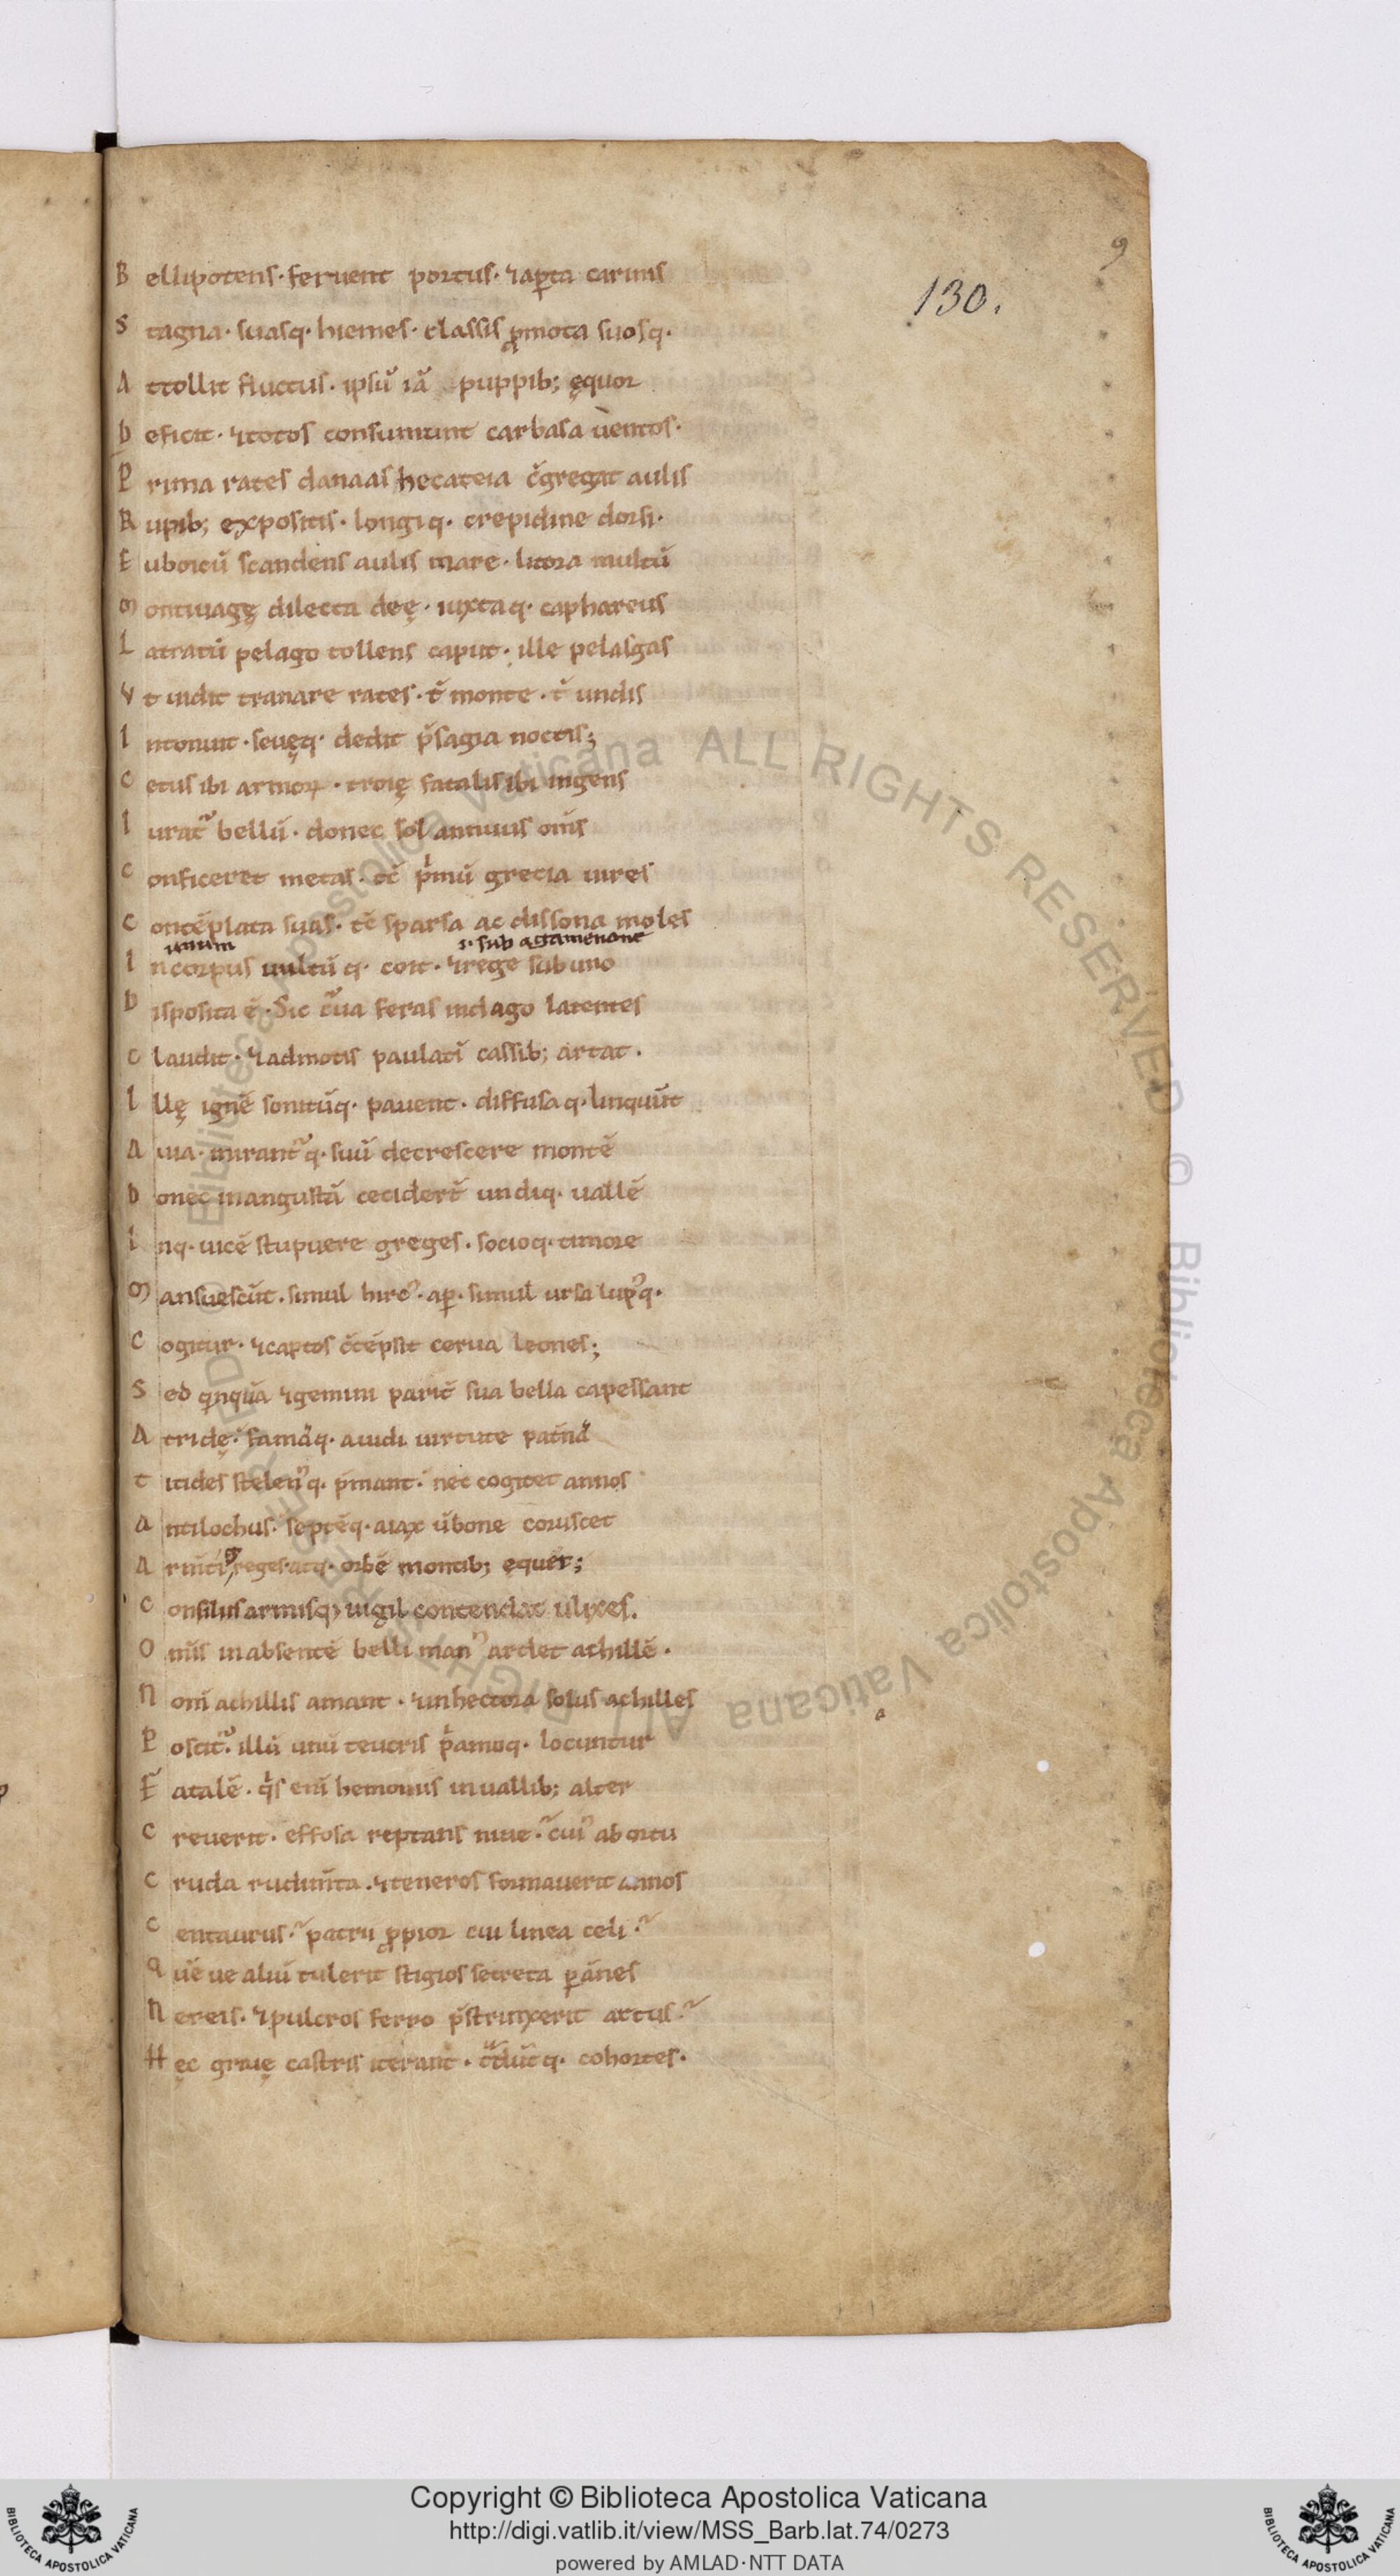 9
130.
B ellipotens · feruent portus · ⁊ aꝑta carinis
S tagna · suasq· hiemes · classis ꝓmota suosq·
A ttollit fluctus · ipsū iā puppib; ęquor
D eficit · ⁊ totos consumunt carbasa uentos·
P rima rates danaas hecateia c̄gregat aulis
R upib; expositis · longiq· crepidine dorsi·
E uboicū scandens aulis mare · litora multū
M ontiuagę dilecta deę · iuxtaq· caphareus
L atratū pelago tollens caput · ille pelasgas
V t uidit tranare rates · t̄ monte · t̄ undis
I ntonuit · seuęq· dedit p̄sagia noctis;
C etus ibi armoꝝ · troię fatalis ibi ingens
I urat᷑ bellū · donec sol annuus om̄s
C onficeret metas · tc̄ pⁱmū grecia uires
C ontēplata suas · tc̄ sparsa ac dissona moles
unum s· sub agamenone
I n corpus uultūq· coit · ⁊ rege sub uno
D isposita ē · Sic c᷑ua feras indago latentes
C laudit · ⁊ admotis paulatī cassib; artat ·
I llę ignē sonitūq· pauent · diffusaq· linquūt
A uia · mirant᷑q· suū decrescere montē
D onec in angustā cecider̄t undiq· uallē
I nq· uicē stupuere greges · socioq· timore
M ansuescūt · simul hirtꝰ · aꝑ · simul ursa lupꝰq·
C ogitur · ⁊ captos c̄tēpsit cerua leones;
S ed qͣnquā ⁊ gemini parit̄ sua bella capessant
A tridę · famāq· auidi uirtute pat̄nā
T itides stelenꝰq· p̄mant · nec cogitet annos
A ntilochus · septēq· aiax ūbone coruscet
A rmīti reges · atq· orbē montib; equet;
C onsiliis armisq; uigil contendat ulixes.
O m̄is in absentē belli manꝰ ardet achillē ·
N om̄ achillis amant · ⁊ in hectora solus achilles
P oscit᷑ · illū unū teucris pⁱamoq· locuntur
F atalē · qⁱs eni hemoniis in uallib; alter
C reuerit · effosa reptans niue · cuiꝰ ab ortu
C ruda rudim̄ta · ⁊ teneros formauerit annos
C entaurus · patrii ꝓpior cui linea celi ·
Q uē ue aliū tulerit stigios secreta ꝑ ānes
N ereis · ⁊ pulcros ferro p̄strinxerit artus ·
H ęc graię castris iterant · cohortes·
Copyright © Biblioteca Apostolica Vaticana
http://digi.vatlib.it/view/MSS_Barb.lat.74/0273
powered by AMLAD·NTT DATA